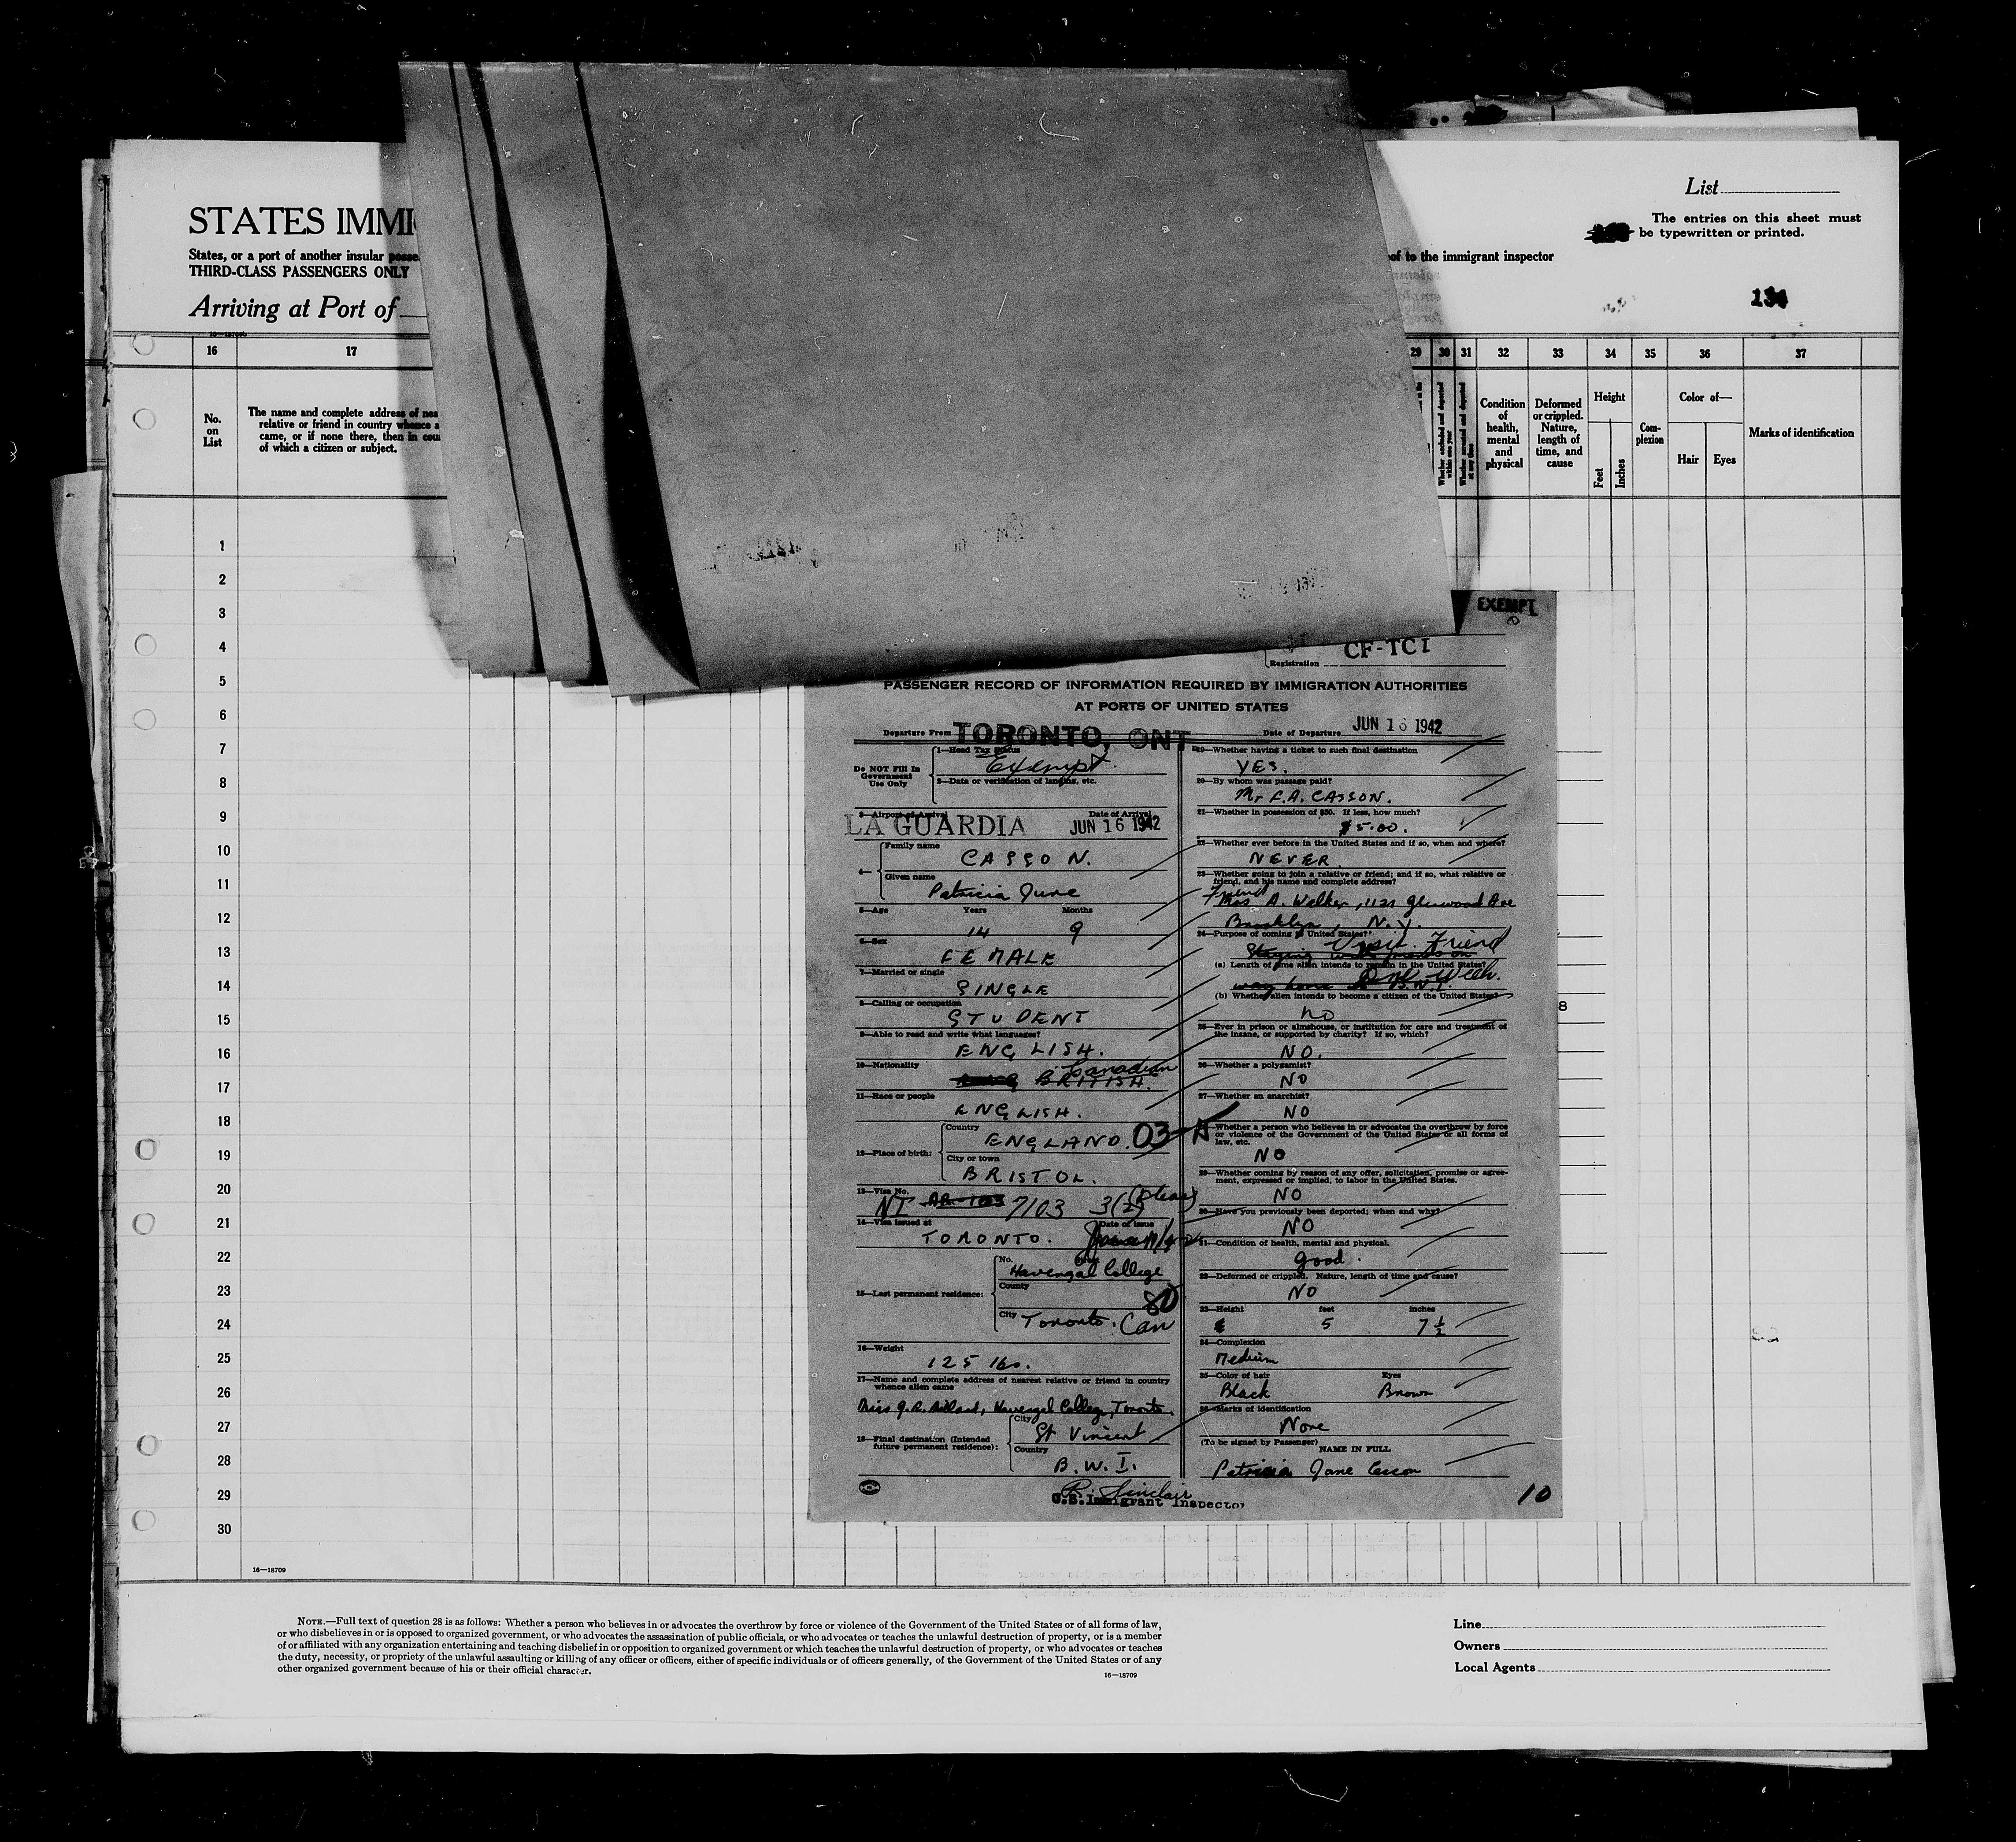 STATES IMMI
States, or a port of another insular posse
THIRD-CLASS PASSENGERS ONLY
Arriving at Port of
List
The entries on this sheet must
be typewritten or printed.
of to the immigrant inspector
16—18709
16
17
29
30
31
32
33
34
35
36
37
No.
on
List
The name and complete address of nea
relative or friend in country whence a
came, or if none there, then in cou
of which a citizen or subject.
Whether excluded and deported
within one year
Whether arrested and deported
at any time
Condition
of
health,
mental
and
physical
Deformed
or crippled.
Nature,
length of
time, and
cause
Height
Feet
Inches
Com-
plexion
Color of—
Hair
Eyes
Marks of identification
1
2
3
4
5
6
7
8
9
10
11
12
13
14
15
16
17
18
19
20
21
22
23
24
25
26
27
28
29
30
EXEMPT
Registration CF-TCI
PASSENGER RECORD OF INFORMATION REQUIRED BY IMMIGRATION AUTHORITIES
AT PORTS OF UNITED STATES
Departure From TORONTO, ONT
Date of Departure JUN 16 1942
Do NOT Fill In
Government
Use Only
1—Head Tax Status
Exempt.
2—Data or verification of landing, etc.
3—Airport of Arrival
Date of Arrival
LA GUARDIA JUN 16 1942
4—
Family name
CASSON.
Given name
Patricia June
5—Age Years Months
14 9
6—Sex
FEMALE
7—Married or single
SINGLE
8—Calling or occupation
STUDENT
9—Able to read and write what languages?
ENGLISH.
10—Nationality
Canadian
BRITISH.
11—Race or people
ENGLISH.
12—Place of birth:
Country
ENGLAND. 03-A
City or town
BRISTOL.
13—Visa No.
NI 7103 3(2)
14—Visa issued at
Date of issue
TORONTO.
15—Last permanent residence:
No.
Havergal College
County
80
City Toronto. Can
16—Weight
125 lbs.
17—Name and complete address of nearest relative or friend in country
whence alien came
Miss Havergal College, Toronto.
18—Final destination (Intended
future permanent residence):
City
St Vincent
Country
B.W.I.
19—Whether having a ticket to such final destination
YES.
20—By whom was passage paid?
Mr F.A. CASSON.
21—Whether in possession of $50. If less, how much?
$5.00.
22—Whether ever before in the United States and if so, when and where?
NEVER.
23—Whether going to join a relative or friend; and if so, what relative or
friend, and his name and complete address?
Friend
Mrs A. Walker, 1121 Glenwood Ave
Brooklyn, N.Y.
24—Purpose of coming to United States?
Visit Friend
Staying with friends on
(a) Length of time alien intends to remain in the United States?
One Week.
way home to B.W.I.
(b) Whether alien intends to become a citizen of the United States?
NO
25—Ever in prison or almshouse, or institution for care and treatment of
the insane, or supported by charity? If so, which?
NO.
26—Whether a polygamist?
NO
27—Whether an anarchist?
NO
Whether a person who believes in or advocates the overthrow by force
or violence of the Government of the United States or all forms of
law, etc.
NO
29—Whether coming by reason of any offer, solicitation, promise or agree-
ment, expressed or implied, to labor in the United States.
NO
30—Have you previously been deported; when and why?
NO
31—Condition of health, mental and physical.
good.
32—Deformed or crippled. Nature, length of time and cause?
NO
33—Height feet inches
5 7½
34—Complexion
Medium
35—Color of hair Eyes
Black Brown
36—Marks of identification
None
(To be signed by Passenger)
NAME IN FULL
Patricia Jane Casson
R. Sinclair
U.S. Immigrant Inspector
10
8
16—18709
NOTE.—Full text of question 28 is as follows: Whether a person who believes in or advocates the overthrow by force or violence of the Government of the United States or of all forms of law,
or who disbelieves in or is opposed to organized government, or who advocates the assassination of public officials, or who advocates or teaches the unlawful destruction of property, or is a member
of or affiliated with any organization entertaining and teaching disbelief in or opposition to organized government or which teaches the unlawful destruction of property, or who advocates or teaches
the duty, necessity, or propriety of the unlawful assaulting or killing of any officer or officers, either of specific individuals or of officers generally, of the Government of the United States or of any
other organized government because of his or their official character.
16—18709
Line
Owners
Local Agents